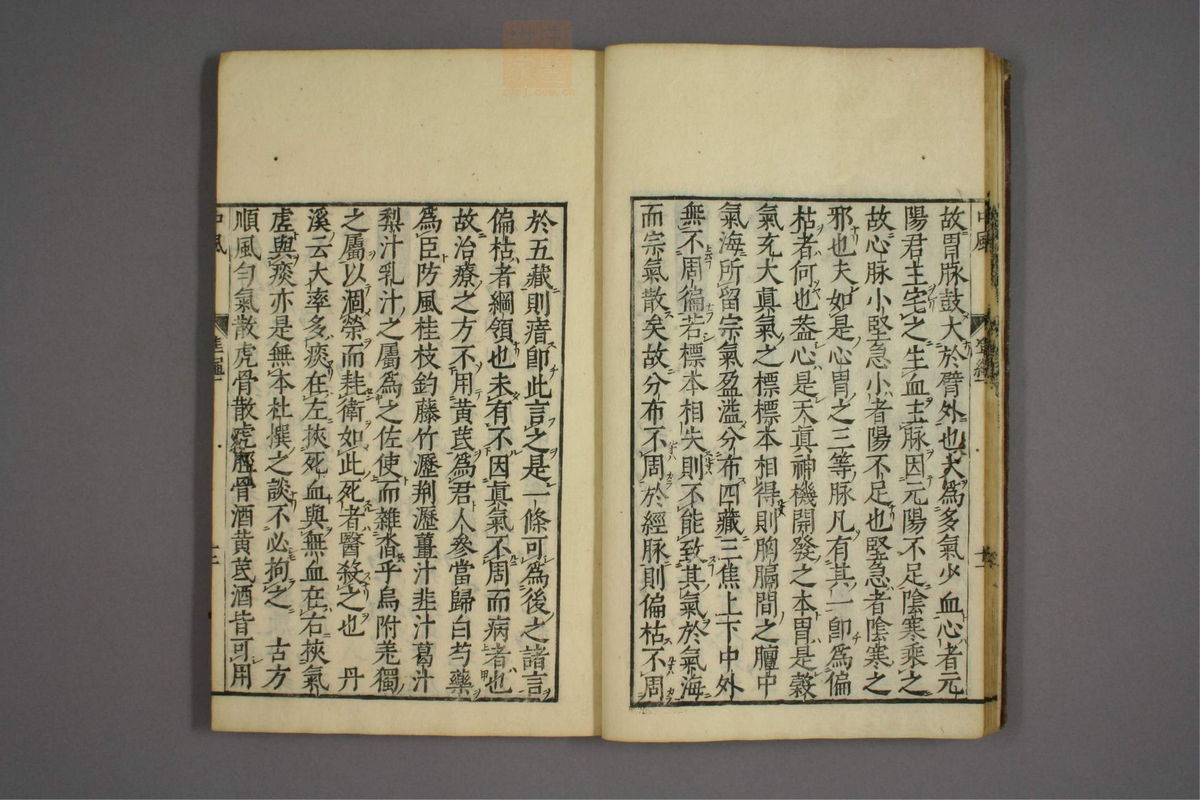 故胃脉鼓大於臂外也大為多氣少血心者元
陽君主宅之生血主脉因元陽不足陰寒乘之
故心脉小堅急小者陽不足也堅急者陰寒之
邪也夫如是心胃之三等脉凡有其一卽為偏
枯者何也葢心是天真神機開發之本胃是榖
氣充大真氣之標標本相得則胸膈間之膻中
氣海所留宗氣盈溢分布四藏三焦上下中外
無不周徧若標本相失則不能致其氣於氣海
而宗氣散矣故分布不周於經脉則偏枯不周
中風
於五藏則瘖卽此言之是一條可為後之諸言
偏枯者綱領也未有不因真氣不周而病者也
故治療之方不用黄芪為君人參當歸白芍藥
為臣防風桂枝鈎藤竹瀝荆瀝薑汁韭汁葛汁
梨汁乳汁之屬為之佐使而雜沓乎烏附羌獨
之屬以涸榮而耗衛如此死者醫殺之也　丹
溪云大率多痰在左挾死血與無血在右挾氣
虛與痰亦是無本杜撰之談不必拘之　古方
順風勻氣散虎骨散虎脛骨酒黄芪酒皆可用
中風